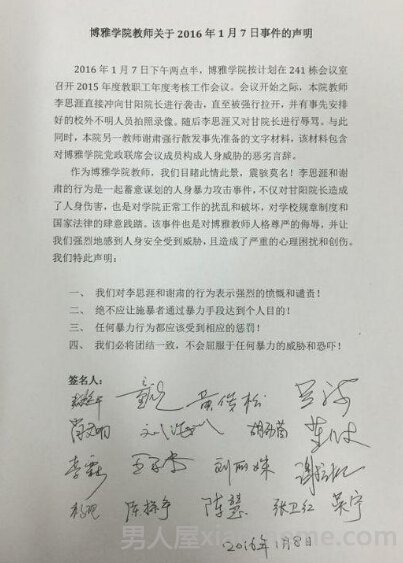 博雅学院教师关于 2016 年 1 月 7 日事件的声明
2016 年 1 月 7 日下午两点半，博雅学院按计划在 241 栋会议室
召开 2015 年度教职工年度考核工作会议。会议开始之际，本院教师
李思涯直接冲向甘阳院长进行袭击，直至被强行拉开，并有事先安排
好的校外不明人员拍照录像。随后李思涯又对甘院长进行辱骂。与此
同时，本院另一教师谢肃强行散发事先准备的文字材料，该材料包含
对博雅学院党政联席会议成员构成人身威胁的恶劣言辞。
作为博雅学院教师，我们目睹此情此景，震骇莫名！李思涯和谢
肃的行为是一起蓄意谋划的人身暴力攻击事件，不仅对甘阳院长造成
了人身伤害，也是对学院正常工作的扰乱和破坏，对学校规章制度和
国家法律的肆意践踏。该事件也是对博雅教师人格尊严的侮辱，并让
我们强烈地感到人身安全受到威胁，且造成了严重的心理困扰和创伤。
我们特此声明：
一、 我们对李思涯和谢肃的行为表示强烈的愤慨和谴责！
二、 绝不应让施暴者通过暴力手段达到个人目的！
三、 任何暴力行为都应该受到相应的惩罚！
四、 我们必将团结一致，不会屈服于任何暴力的威胁和恐吓！
签名人：
黄俊松
刘丽姝
陈慧 张卫红 吴宁
2016年1月8日
男人屋